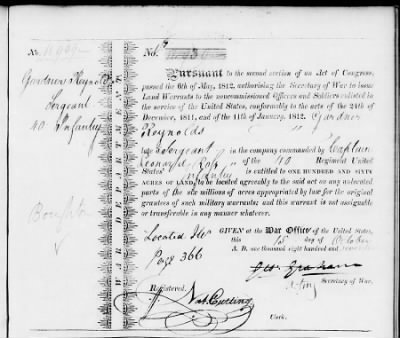 No.
Gardner Reynolds
Sergeant
40 Infantry
WAR DEPARTMENT
No.
Pursuant to the second section of an Act of Congress,
passed the 6th of May, 1812, authorising the Secretary of War to issue
Land Warrants to the noncommissioned Officers and Soldiers enlisted in
the service of the United States, conformably to the acts of the 24th of
December, 1811, and of the 11th of January, 1812. Gardner
Reynolds
late Sergeant in the company commanded by Captain
Leonard Ross of the 40 Regiment United
States' Infantry is entitled to ONE HUNDRED AND SIXTY
ACRES OF LAND, to be located agreeably to the said act on any unlocated
parts of the six millions of acres appropriated by law for the original
grantees of such military warrants; and this warrant is not assignable
or transferable in any manner whatever.
Located
Page 366
GIVEN at the War Office of the United States,
this day of October
A. D. one thousand eight hundred and
Geo: Graham
Actg Secretary of War.
Registered.
Nat. Cutting
Clerk.